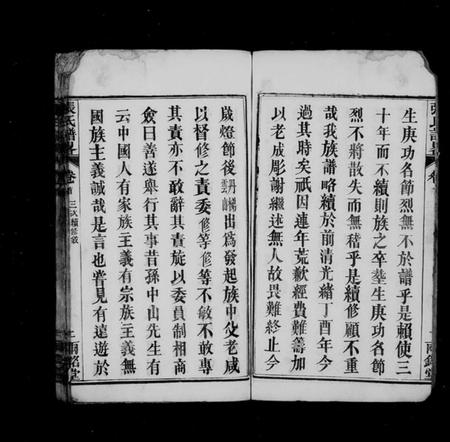 生庚功名節烈無不於譜乎是賴使三
十年而不續則族之卒塟生庚功名節
烈不將散失而無稽乎是續修顧不重
哉我族譜略續於前清光緒丁酉年今
過其時矣祇因連年荒歉經費難籌加
以老成彫謝繼述無人故畏難終止今
歲燈節後出為發起族中父老咸
以督修之責委修等修等不敏不敢專
其責亦不敢辭其責旋以委員制相商
僉曰善遂舉行其事昔孫中山先生有
云中國人有家族主義有宗族主義無
國族主義誠哉是言也嘗見有遠遊於
張氏譜
卷首
三次續修敘
二